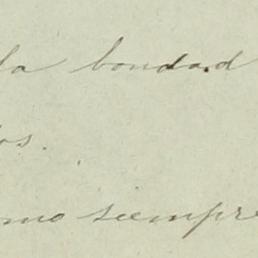 la bondad
os.
omo siempre